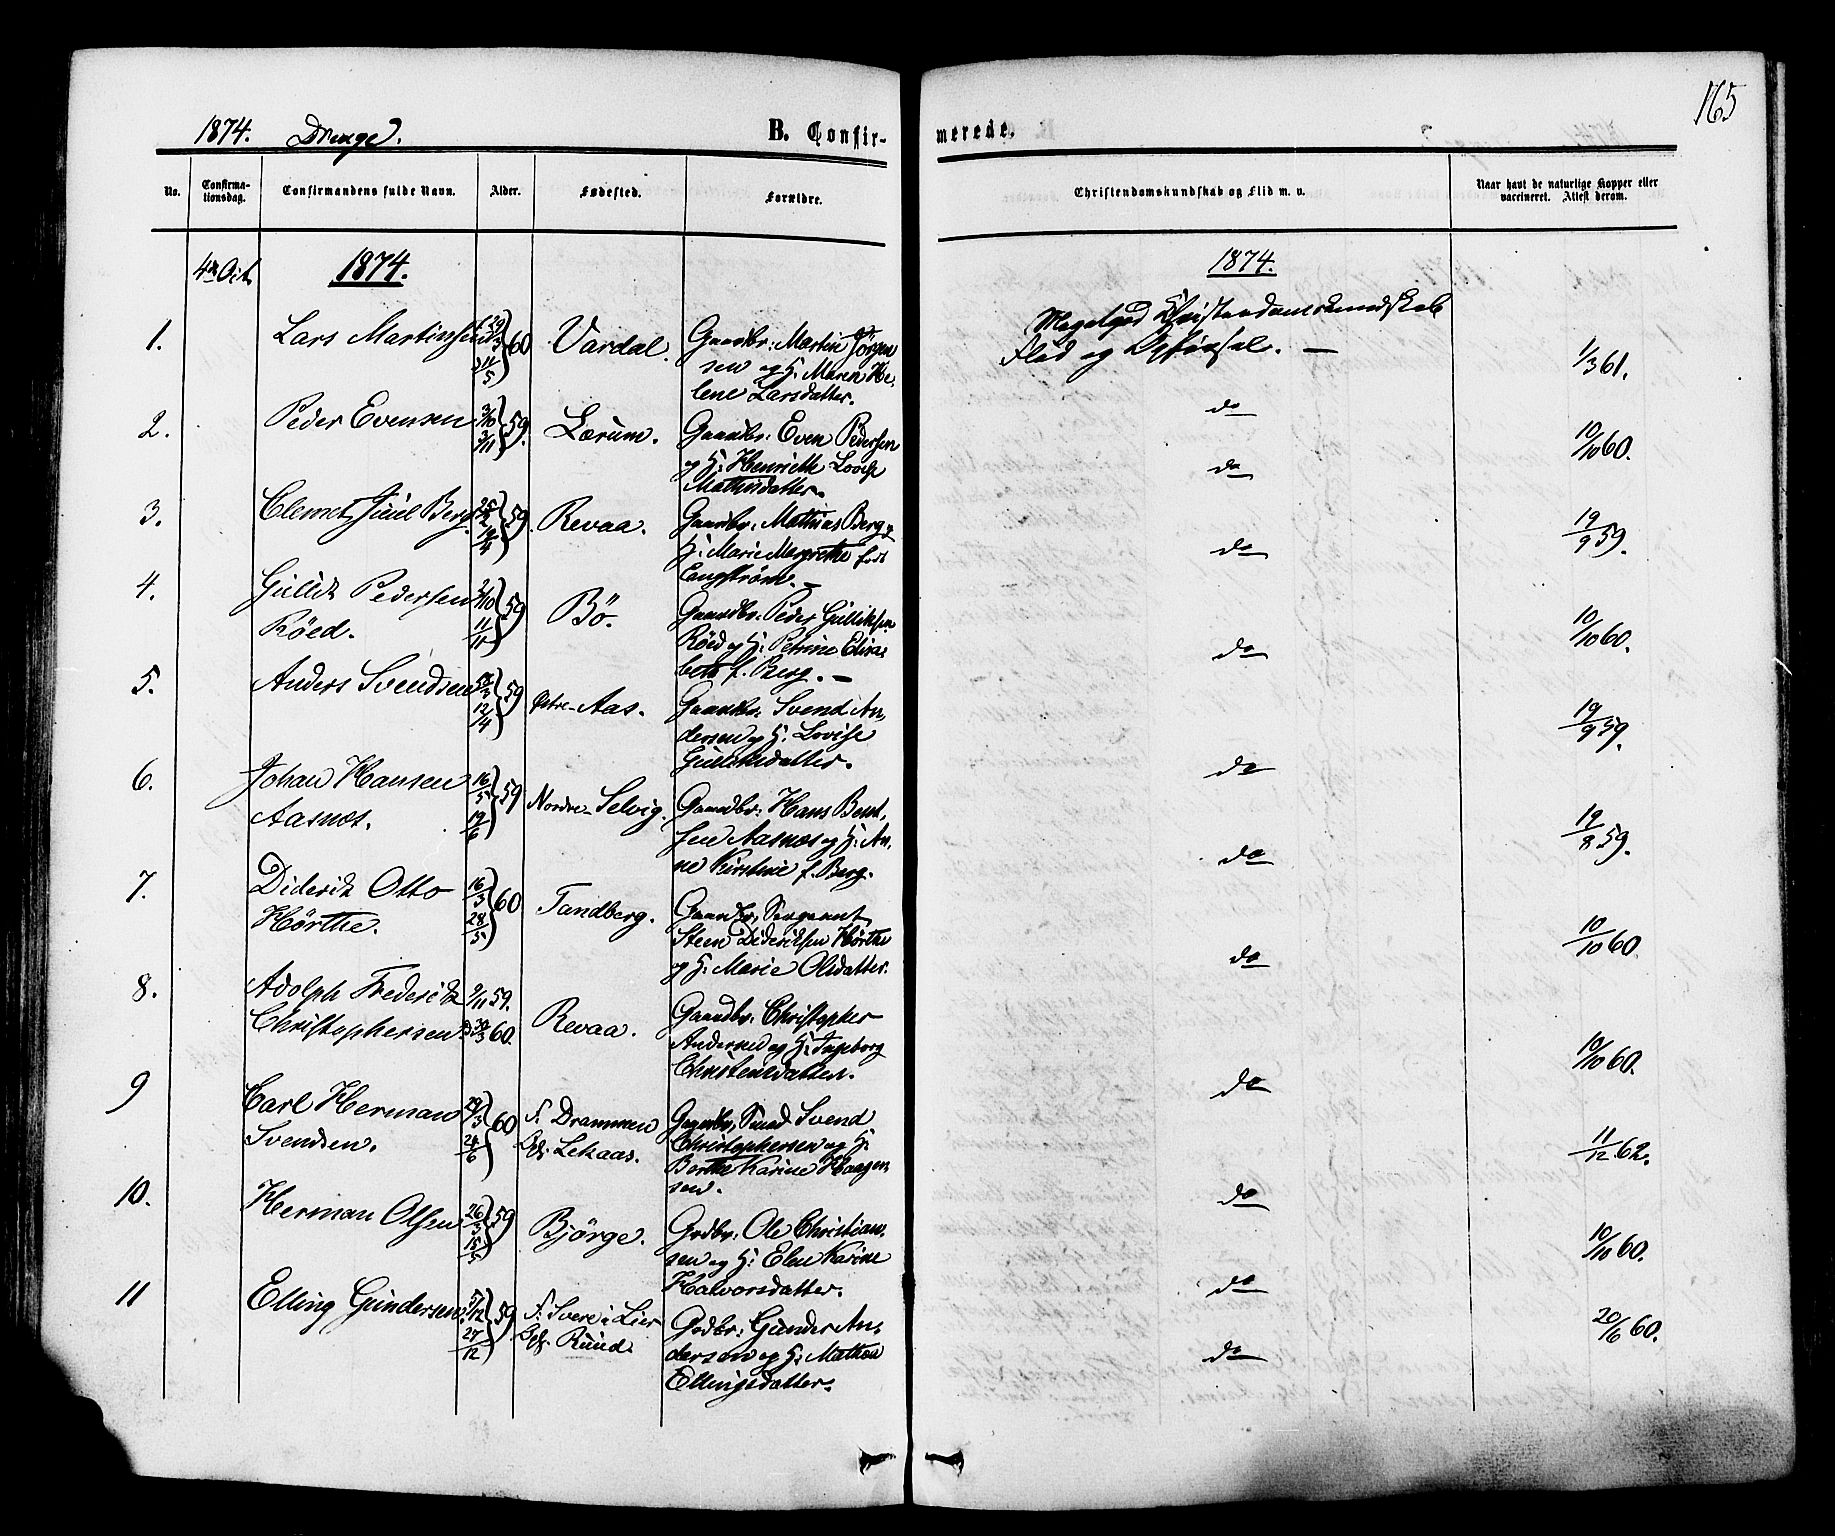 165
1874. Drenge. B. Confirmerede.
No. Confirmationsdag. Confirmandens fulde Navn. Alder. Fødested. Forældre. Christendomskundskab og Flid m. v. Naar havt de naturlige Kopper eller vaccineret. Attest derom.
4de Oct. 1874. 1874.
1. Lars Martinsen 60 Vardal. Gaardbr: Martin Jörgen
sen og H: Maren He-
lene Larsdatter.
Meget god Christendomskundskab
Flid og Opførsel. —
1/3 61.
2. Peder Evensen 3/10 3/11 59. Lærum. Gaardbr: Even Pedersen
og H: Henriette Lovise
Mathisdatter.
do
do
10/10 60.
3. Clemet Juul Berg. 59 Revaa. Gaardbr: Mathias Berg og
H: Marie Margrethe født
Langström. —
do
19/9 59.
4. Gullik Pedersen
Röed.
2/10 11/11 59 Bö. Gaardbr: Peder Gulliksen
Röed og H: Petrine Elisa-
beth f. Berg. —
do
10/10 60.
5. Anders Svendsen 12/4 59 Østre-Aas. Gaardbr: Svend An-
dersen og H: Lovise
Gulliksdatter.
do
19/9 59.
6. Johan Hansen
Aasnæs.
16/5 19/6 59 Nordre-Selvig. Gaardbr: Hans Bent-
sen Aasnæs og H: An-
ne Kirstine f. Berg.
do
19/8 59.
7. Diderik Otto
Hörthe.
16/3 28/5 60 Tandberg. Gaardbr, Sergeant
Steen Dideriksen Hörthe
og H: Marie Olsdatter.
do
10/10 60
8. Adolph Frederik
Christophersen
9/11 59.
60. Revaa. Gaardbr: Christopher
Andersen og H: Ingeborg
Christensdatter.
do
10/10 60.
9 Carl Herman
Svendsen.
24/6 60 F. Drammen
Opf. Lekaas. Gaardbr, Smed Svend
Christophersen og H:
Berthe Karine Haagen-
sen.
do
11/12 62.
10. Herman Olsen 26/3 15/5 59 Bjørge. Grdbr: Ole Christian-
sen og H: Elen Karine
Halvorsdatter.
do
10/10 60.
11 Elling Gundersen. 5/12 27/12 59 F. Svere i Lier
Opf. Ruud. Grdbr: Gunder An-
dersen og H: Mathea
Ellingsdatter.
do
20/6 60.